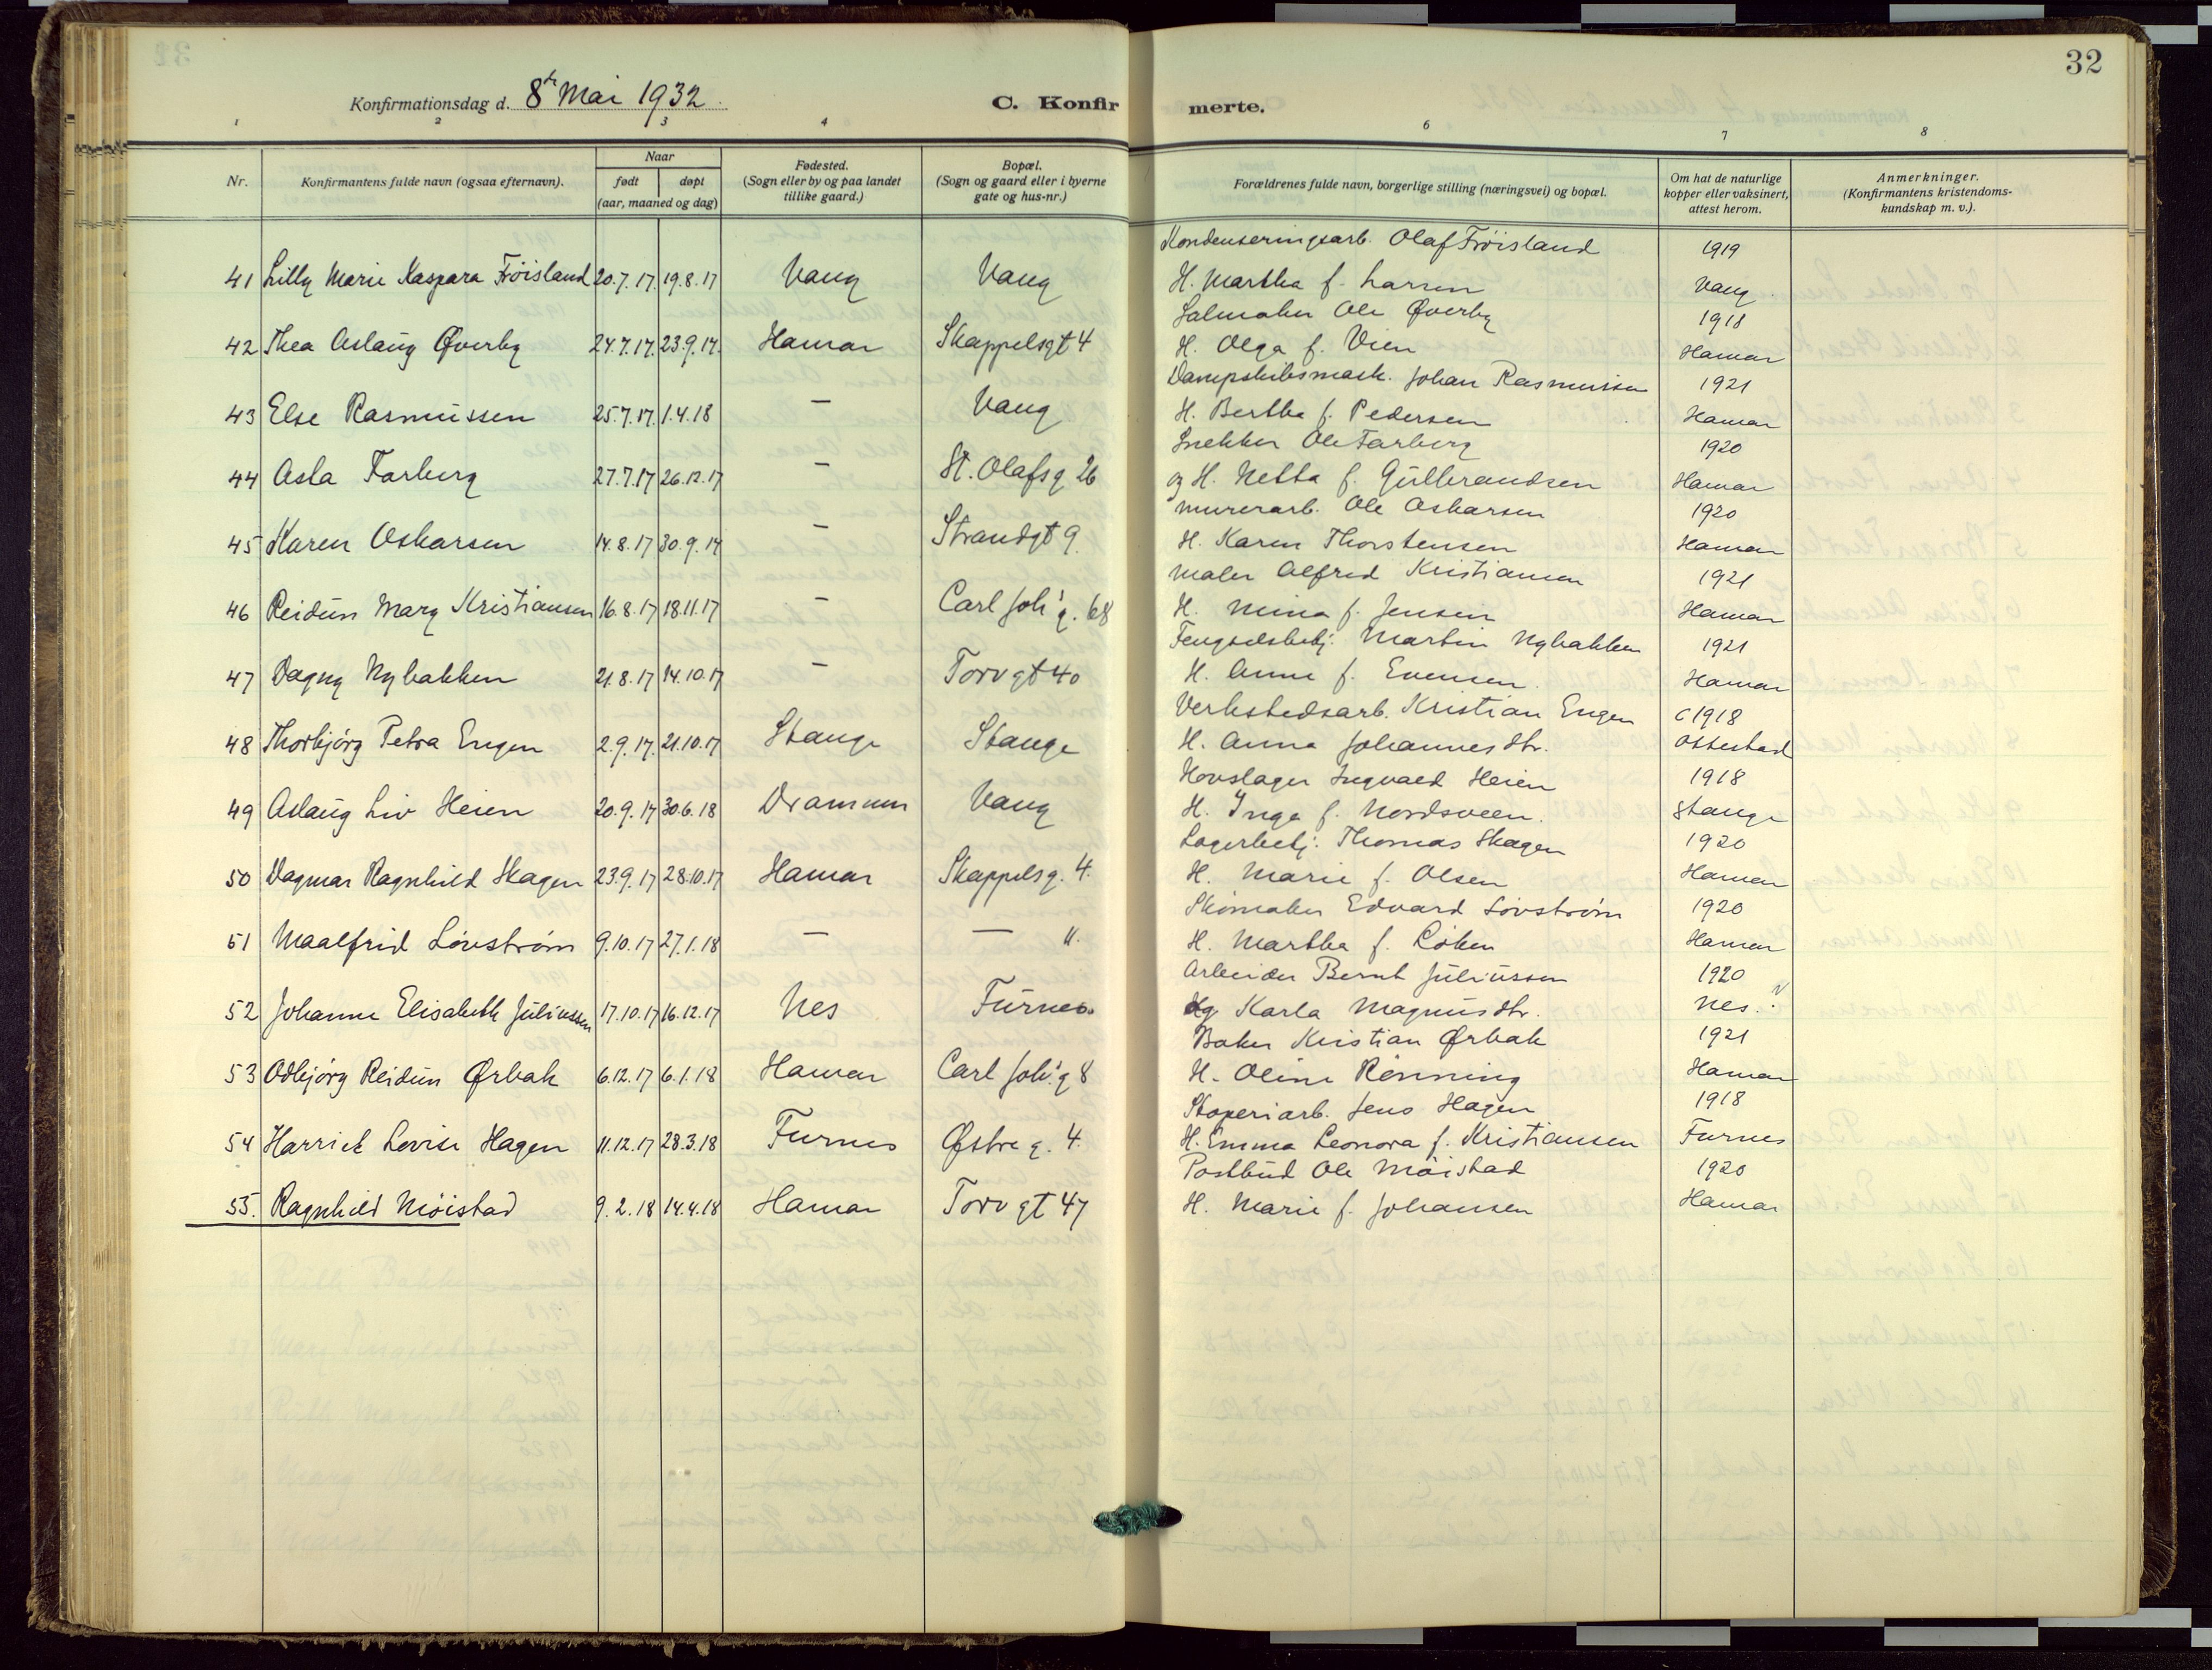 32
Konfirmationsdag d. 8de Mai 1932
C. Konfirmerte.
1 2 3 4 6 7 8
Nr.
Konfirmantens fulde navn (ogsaa efternavn).
Naar
født døpt
(aar, maaned og dag)
Fødested.
(Sogn eller by og paa landet
tillike gaard.)
Bopæl.
(Sogn og gaard eller i byerne
gate og hus-nr.)
Forældrenes fulde navn, borgerlige stilling (næringsvei) og bopæl.
Om hat de naturlige
kopper eller vaksinert,
attest herom.
Anmerkninger.
(Konfirmantens kristendoms-
kundskap m. v.).
Kondenseringsarb. Olaf Fröisland 1919
41 Lilly Marie Kaspara Fröisland 20.7.17. 19.8.17 Vang Vang H. Martha f. Larsen Vang
Salmaker Ole Øverby 1918
42 Thea Aslaug Øverby 24.7.17. 23.9.17. Hamar Skappelsgt 4 H. Olga f. Vien Hamar
Dampskibsmask. Johan Rasmussen 1921
43 Else Rasmussen 25.7.17. 1.4.18 — Vang H. Bertha f. Pedersen Hamar
Snekker Ole Farberg 1920
44 Asla Farberg 27.7.17 26.12.17 — St. Olafsg 26 og H. Netta f. Gulbrandsen Hamar
Murerarb. Ole Oskarsen 1920
45 Karen Oskarsen 14.8.17 30.9.17 — Strandgt 9. H. Karen Thorstensen Hamar
Maler Alfred Kristiansen 1921
46 Reidun Mary Kristiansen 16.8.17 18.11.17 — Carl Joh's g. 68 H. Mina f. Jensen Hamar
Fengselsbetj. Martin Nybakken 1921
47 Dagny Nybakken 21.8.17 14.10.17 — Torvgt 40 H. Anne f. Evensen. Hamar
Verkstedsarb. Kristian Engen c 1918
48 Thorbjörg Petra Engen 2.9.17. 21.10.17 Stange Stange H. Anna Johannesdtr. Ottestad
Hovslager Ingvald Heien 1918
49 Aslaug Liv Heien 20.9.17 30.6.18 Drammen Vang H. Inga f. Nordsveen. Stange
Lagerbetj. Thomas Skagen 1920
50 Dagmar Ragnhild Skagen 23.9.17 28.10.17 Hamar Skappelsg. 4. H. Marie f. Olsen Hamar
Skomaker Edvard Lövström 1920
51 Maalfrid Lövström 9.10.17 27.1.18 — — 11. H. Martha f. Löken Hamar
Arbeider Bernt Juliussen 1920
52 Johanne Elisabeth Juliussen 17.10.17 16.12.17 Nes Furnes. Karla Magnusdtr. Nes.
Baker Kristian Ørbak 1921
53 Odbjörg Reidun Ørbak 6.12.17 6.1.18 Hamar Carl Joh's g 8 H. Oline Rönning Hamar
Støperiarb. Jens Hagen 1918
54 Harriet Lovise Hagen 11.12.17 28.3.18 Furnes Østre g. 4. H. Emma Leonora f. Kristiansen Furnes
Postbud Ole Möistad 1920
55. Ragnhild Möistad 9.2.18 14.4.18 Hamar Torvgt 47 H. Marie f. Johansen Hamar